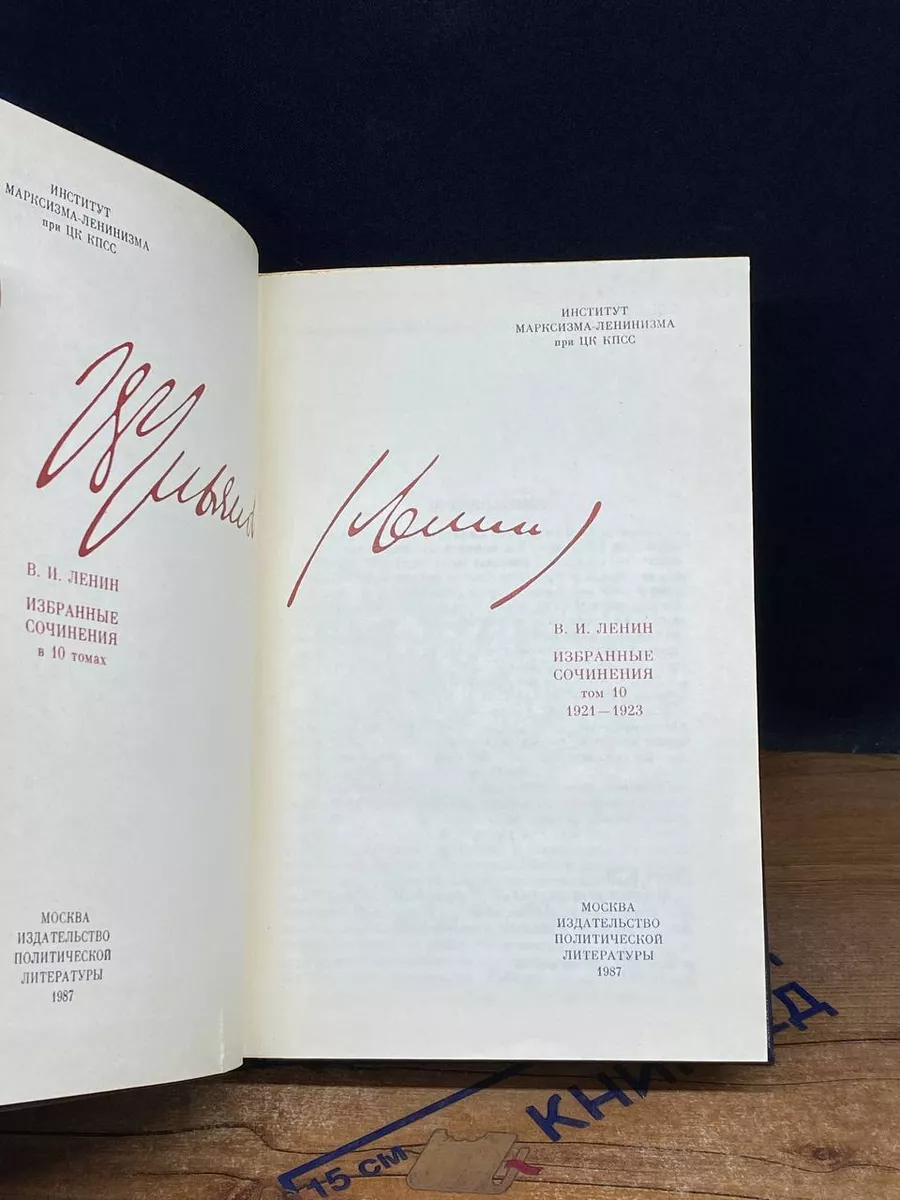 ИНСТИТУТ
МАРКСИЗМА-ЛЕНИНИЗМА
при ЦК КПСС
В. И. ЛЕНИН
ИЗБРАННЫЕ
СОЧИНЕНИЯ
в 10 томах
МОСКВА
ИЗДАТЕЛЬСТВО
ПОЛИТИЧЕСКОЙ
ЛИТЕРАТУРЫ
1987
ИНСТИТУТ
МАРКСИЗМА-ЛЕНИНИЗМА
при ЦК КПСС
(Ленин)
В. И. ЛЕНИН
ИЗБРАННЫЕ
СОЧИНЕНИЯ
том 10
1921—1923
МОСКВА
ИЗДАТЕЛЬСТВО
ПОЛИТИЧЕСКОЙ
ЛИТЕРАТУРЫ
1987
15 см